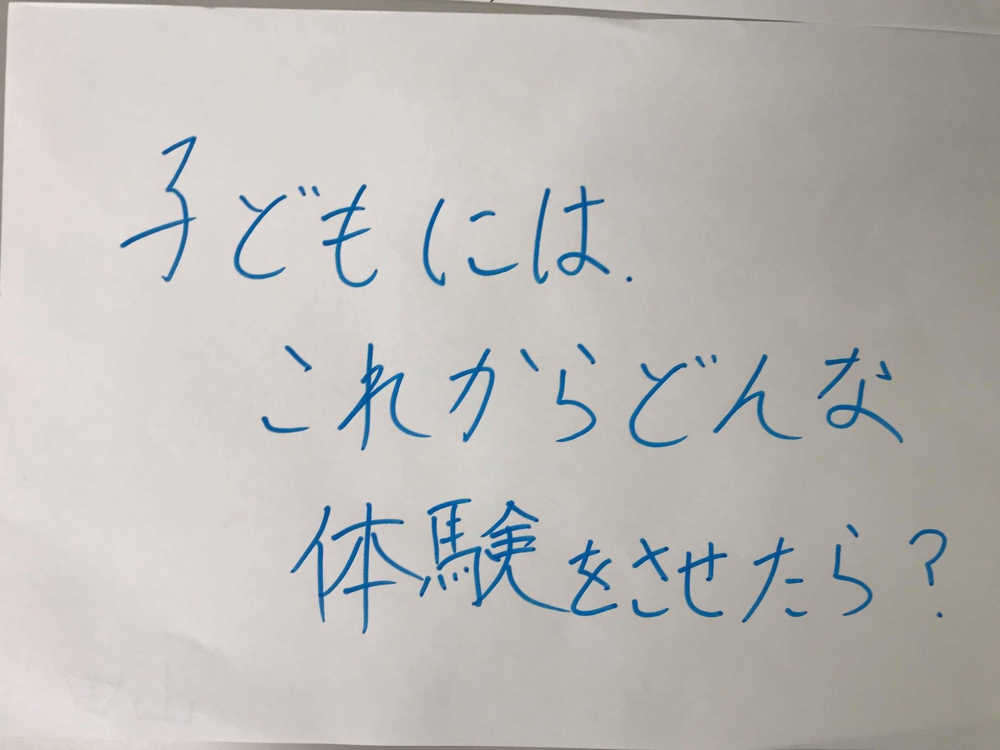 子どもには.
これからどんな
体験をさせたら?